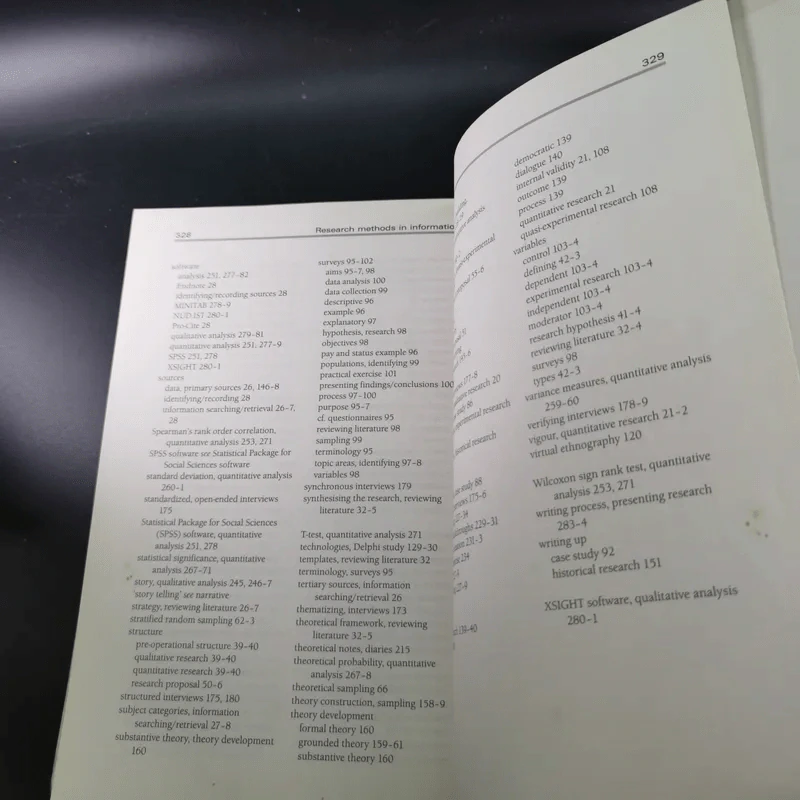 328
Research methods in informatio
software
analysis 251, 277–82
Endnote 28
identifying/recording sources 28
MINITAB 278–9
NUD.IST 280–1
Pro-Cite 28
qualitative analysis 279–81
quantitative analysis 251, 277–9
SPSS 251, 278
XSIGHT 280–1
sources
data, primary sources 26, 146–8
identifying/recording 28
information searching/retrieval 26–7,
28
Spearman's rank order correlation,
quantitative analysis 253, 271
SPSS software see Statistical Package for
Social Sciences software
standard deviation, quantitative analysis
260–1
standardized, open-ended interviews
175
Statistical Package for Social Sciences
(SPSS) software, quantitative
analysis 251, 278
statistical significance, quantitative
analysis 267–71
story, qualitative analysis 245, 246–7
'story telling' see narrative
strategy, reviewing literature 26–7
stratified random sampling 62–3
structure
pre-operational structure 39–40
qualitative research 39–40
quantitative research 39–40
research proposal 50–6
structured interviews 175, 180
subject categories, information
searching/retrieval 27–8
substantive theory, theory development
160
surveys 95–102
aims 95–7, 98
data analysis 100
data collection 99
descriptive 96
example 96
explanatory 97
hypothesis, research 98
objectives 98
pay and status example 96
populations, identifying 99
practical exercise 101
presenting findings/conclusions 100
process 97–100
purpose 95–7
cf. questionnaires 95
reviewing literature 98
sampling 99
terminology 95
topic areas, identifying 97–8
variables 98
synchronous interviews 179
synthesising the research, reviewing
literature 32–5
T-test, quantitative analysis 271
technologies, Delphi study 129–30
templates, reviewing literature 32
terminology, surveys 95
tertiary sources, information
searching/retrieval 26
thematizing, interviews 173
theoretical framework, reviewing
literature 32–5
theoretical notes, diaries 215
theoretical probability, quantitative
analysis 267–8
theoretical sampling 66
theory construction, sampling 158–9
theory development
formal theory 160
grounded theory 159–61
substantive theory 160
329
analysis
experimental
oposal 55–6
177–8
research 20
study 86
experimental research
historical research
case study 88
175–6
229–31
231–3
234
139–40
democratic 139
dialogue 140
internal validity 21, 108
outcome 139
process 139
quantitative research 21
quasi-experimental research 108
variables
control 103–4
defining 42–3
dependent 103–4
experimental research 103–4
independent 103–4
moderator 103–4
research hypothesis 41–4
reviewing literature 32–4
surveys 98
types 42–3
variance measures, quantitative analysis
259–60
verifying interviews 178–9
vigour, quantitative research 21–2
virtual ethnography 120
Wilcoxon sign rank test, quantitative
analysis 253, 271
writing process, presenting research
283–4
writing up
case study 92
historical research 151
XSIGHT software, qualitative analysis
280–1